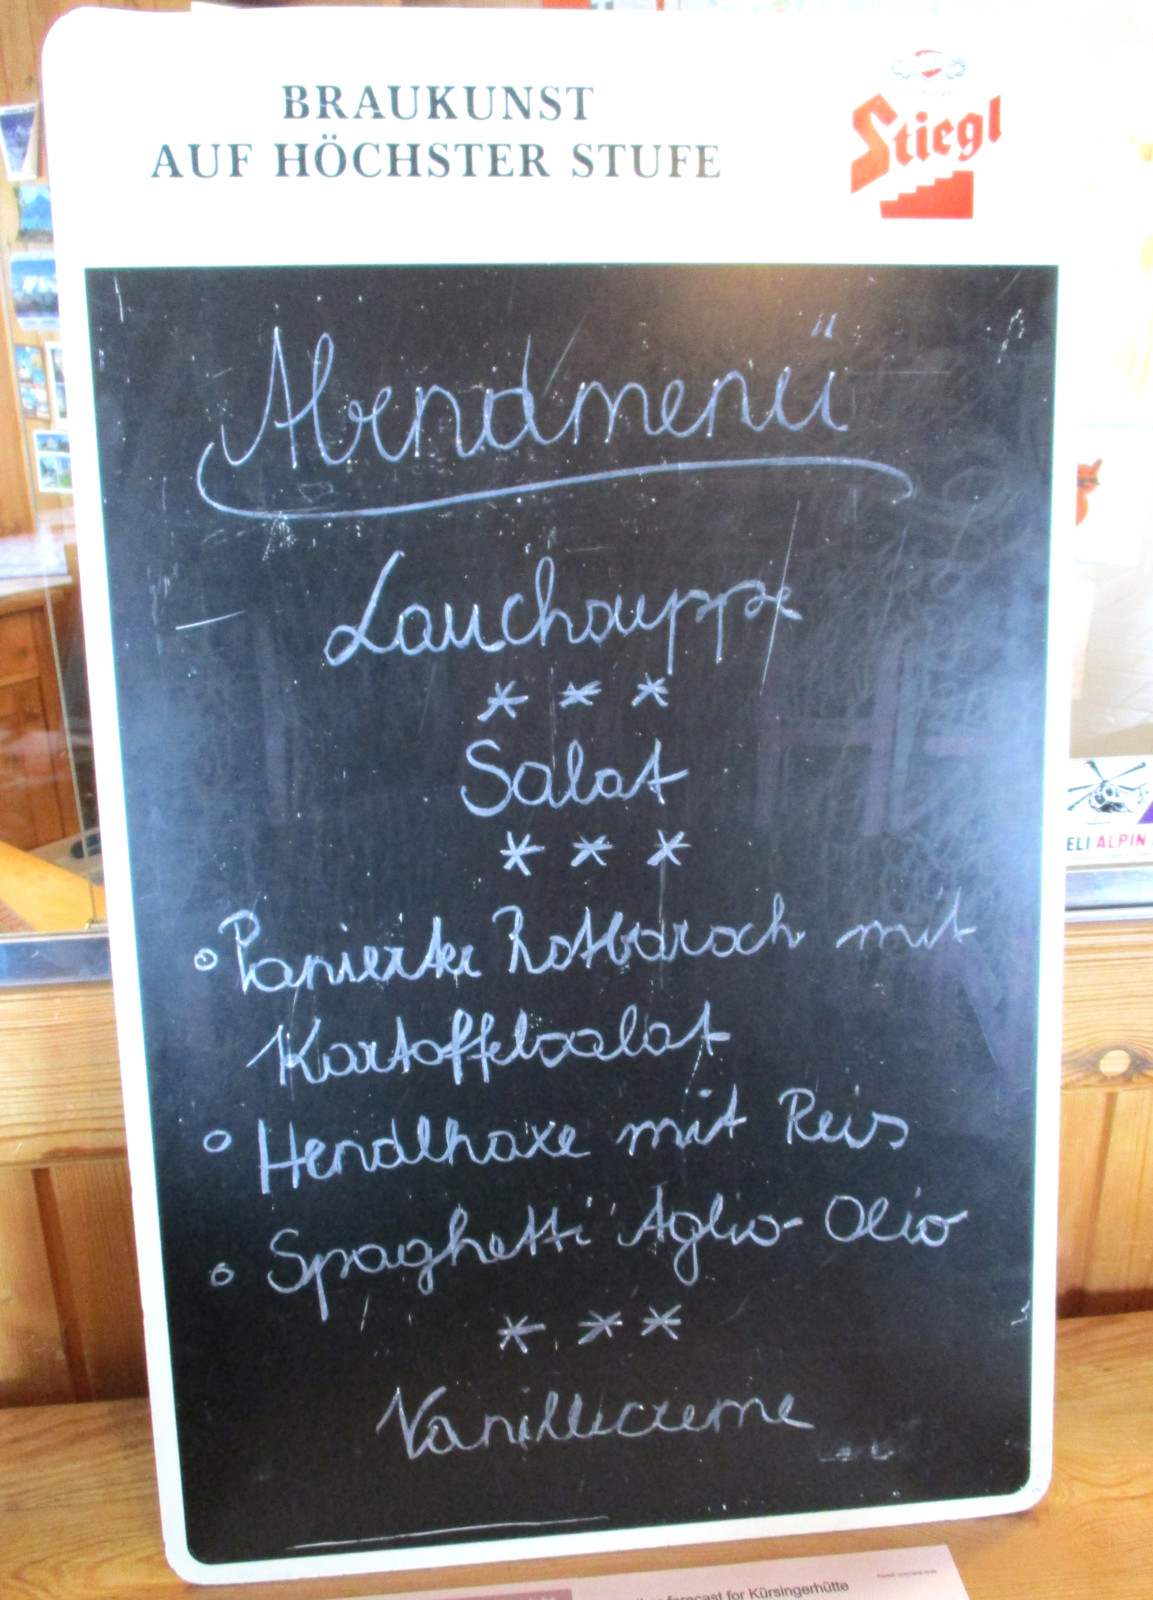 BRAUKUNST
AUF HÖCHSTER STUFE
Stiegl
Abendmenü
Lauchsuppe
* * *
Salat
* * *
Panierter Rotbarsch mit
Kartoffelsalat
Hendlhaxe mit Reis
Spaghetti Aglio-Olio
* * *
Vanillecreme
ELI ALPIN
forecast for Kürsingerhütte